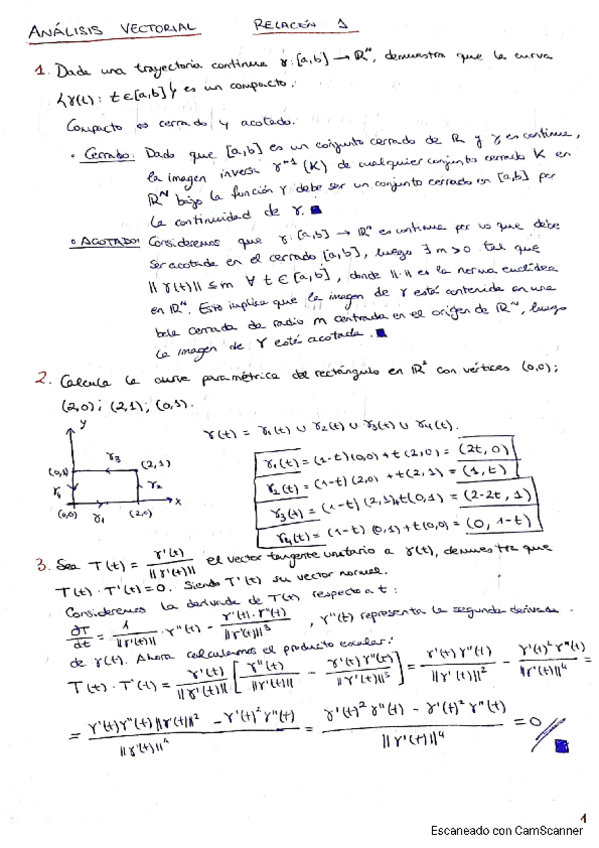 ANÁLISIS VECTORIAL RELACIÓN 1
1. Dada una trayectoria continua γ:[a,b] → ℝᴺ, demuestra que la curva
{γ(t): t∈[a,b]} es un compacto.
Compacto ⇔ cerrado y acotado.
• Cerrado: Dado que [a,b] es un conjunto cerrado de ℝ y γ es continua,
la imagen inversa γ⁻¹(K) de cualquier conjunto cerrado K en
ℝᴺ bajo la función γ debe ser un conjunto cerrado en [a,b] por
la continuidad de γ.
• ACOTADO: Consideremos que γ:[a,b] → ℝᴺ es continua por lo que debe
ser acotada en el cerrado [a,b], luego ∃ m>0 tal que
||γ(t)|| ≤ m ∀ t ∈ [a,b], donde ||·|| es la norma euclídea
en ℝᴺ. Esto implica que la imagen de γ está contenida en una
bola cerrada de radio m centrada en el origen de ℝᴺ, luego
la imagen de γ está acotada.
2. Calcula la curva paramétrica del rectángulo en ℝ² con vértices (0,0);
(2,0); (2,1); (0,1).
y
γ(t) = γ₁(t) ∪ γ₂(t) ∪ γ₃(t) ∪ γ₄(t).
γ₃
(0,1) (2,1)
γ₄ γ₂
x
(0,0) γ₁ (2,0)
γ₁(t) = (1-t)(0,0) + t(2,0) = (2t,0)
γ₂(t) = (1-t)(2,0) + t(2,1) = (1,t)
γ₃(t) = (1-t)(2,1)+t(0,1) = (2-2t,1)
γ₄(t) = (1-t)(0,1)+t(0,0) = (0,1-t)
3. Sea T(t) = γ'(t)/||γ'(t)|| el vector tangente unitario a γ(t), demuestra que
T(t) · T'(t) = 0. Siendo T'(t) su vector normal.
Consideremos la derivada de T(t) respecto a t:
∂T/dt = 1/||γ'(t)|| · γ''(t) - γ'(t)·γ''(t)/||γ'(t)||³, γ''(t) representa la segunda derivada
de γ(t). Ahora calculamos el producto escalar:
T(t) · T'(t) = γ'(t)/||γ'(t)|| [γ''(t)/||γ'(t)|| - γ'(t)γ''(t)/||γ'(t)||³] = γ'(t)γ''(t)/||γ'(t)||² - γ'(t)²γ''(t)/||γ'(t)||⁴ =
= γ'(t)γ''(t)||γ(t)||² - γ'(t)²γ''(t)/||γ'(t)||⁴ = γ'(t)²γ''(t) - γ'(t)²γ''(t)/||γ'(t)||⁴ = 0
1
Escaneado con CamScanner